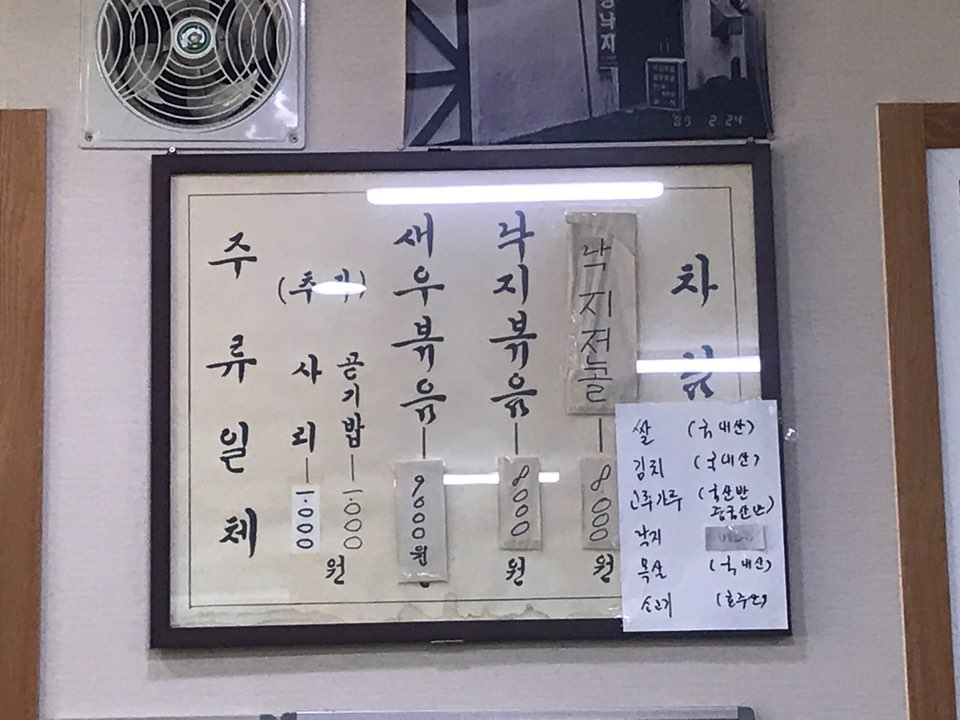 낙지
'89 2 24
차
낙지전골 8000원
낙지볶음 8000원
새우볶음 9000원
(추가)
공기밥 1.000
사리 1.000
원
주류일체
쌀 (국내산)
김치 (국내산)
고추가루 (국산반
중국산반)
낙지
목살 (국내산)
소고기 (호주산)